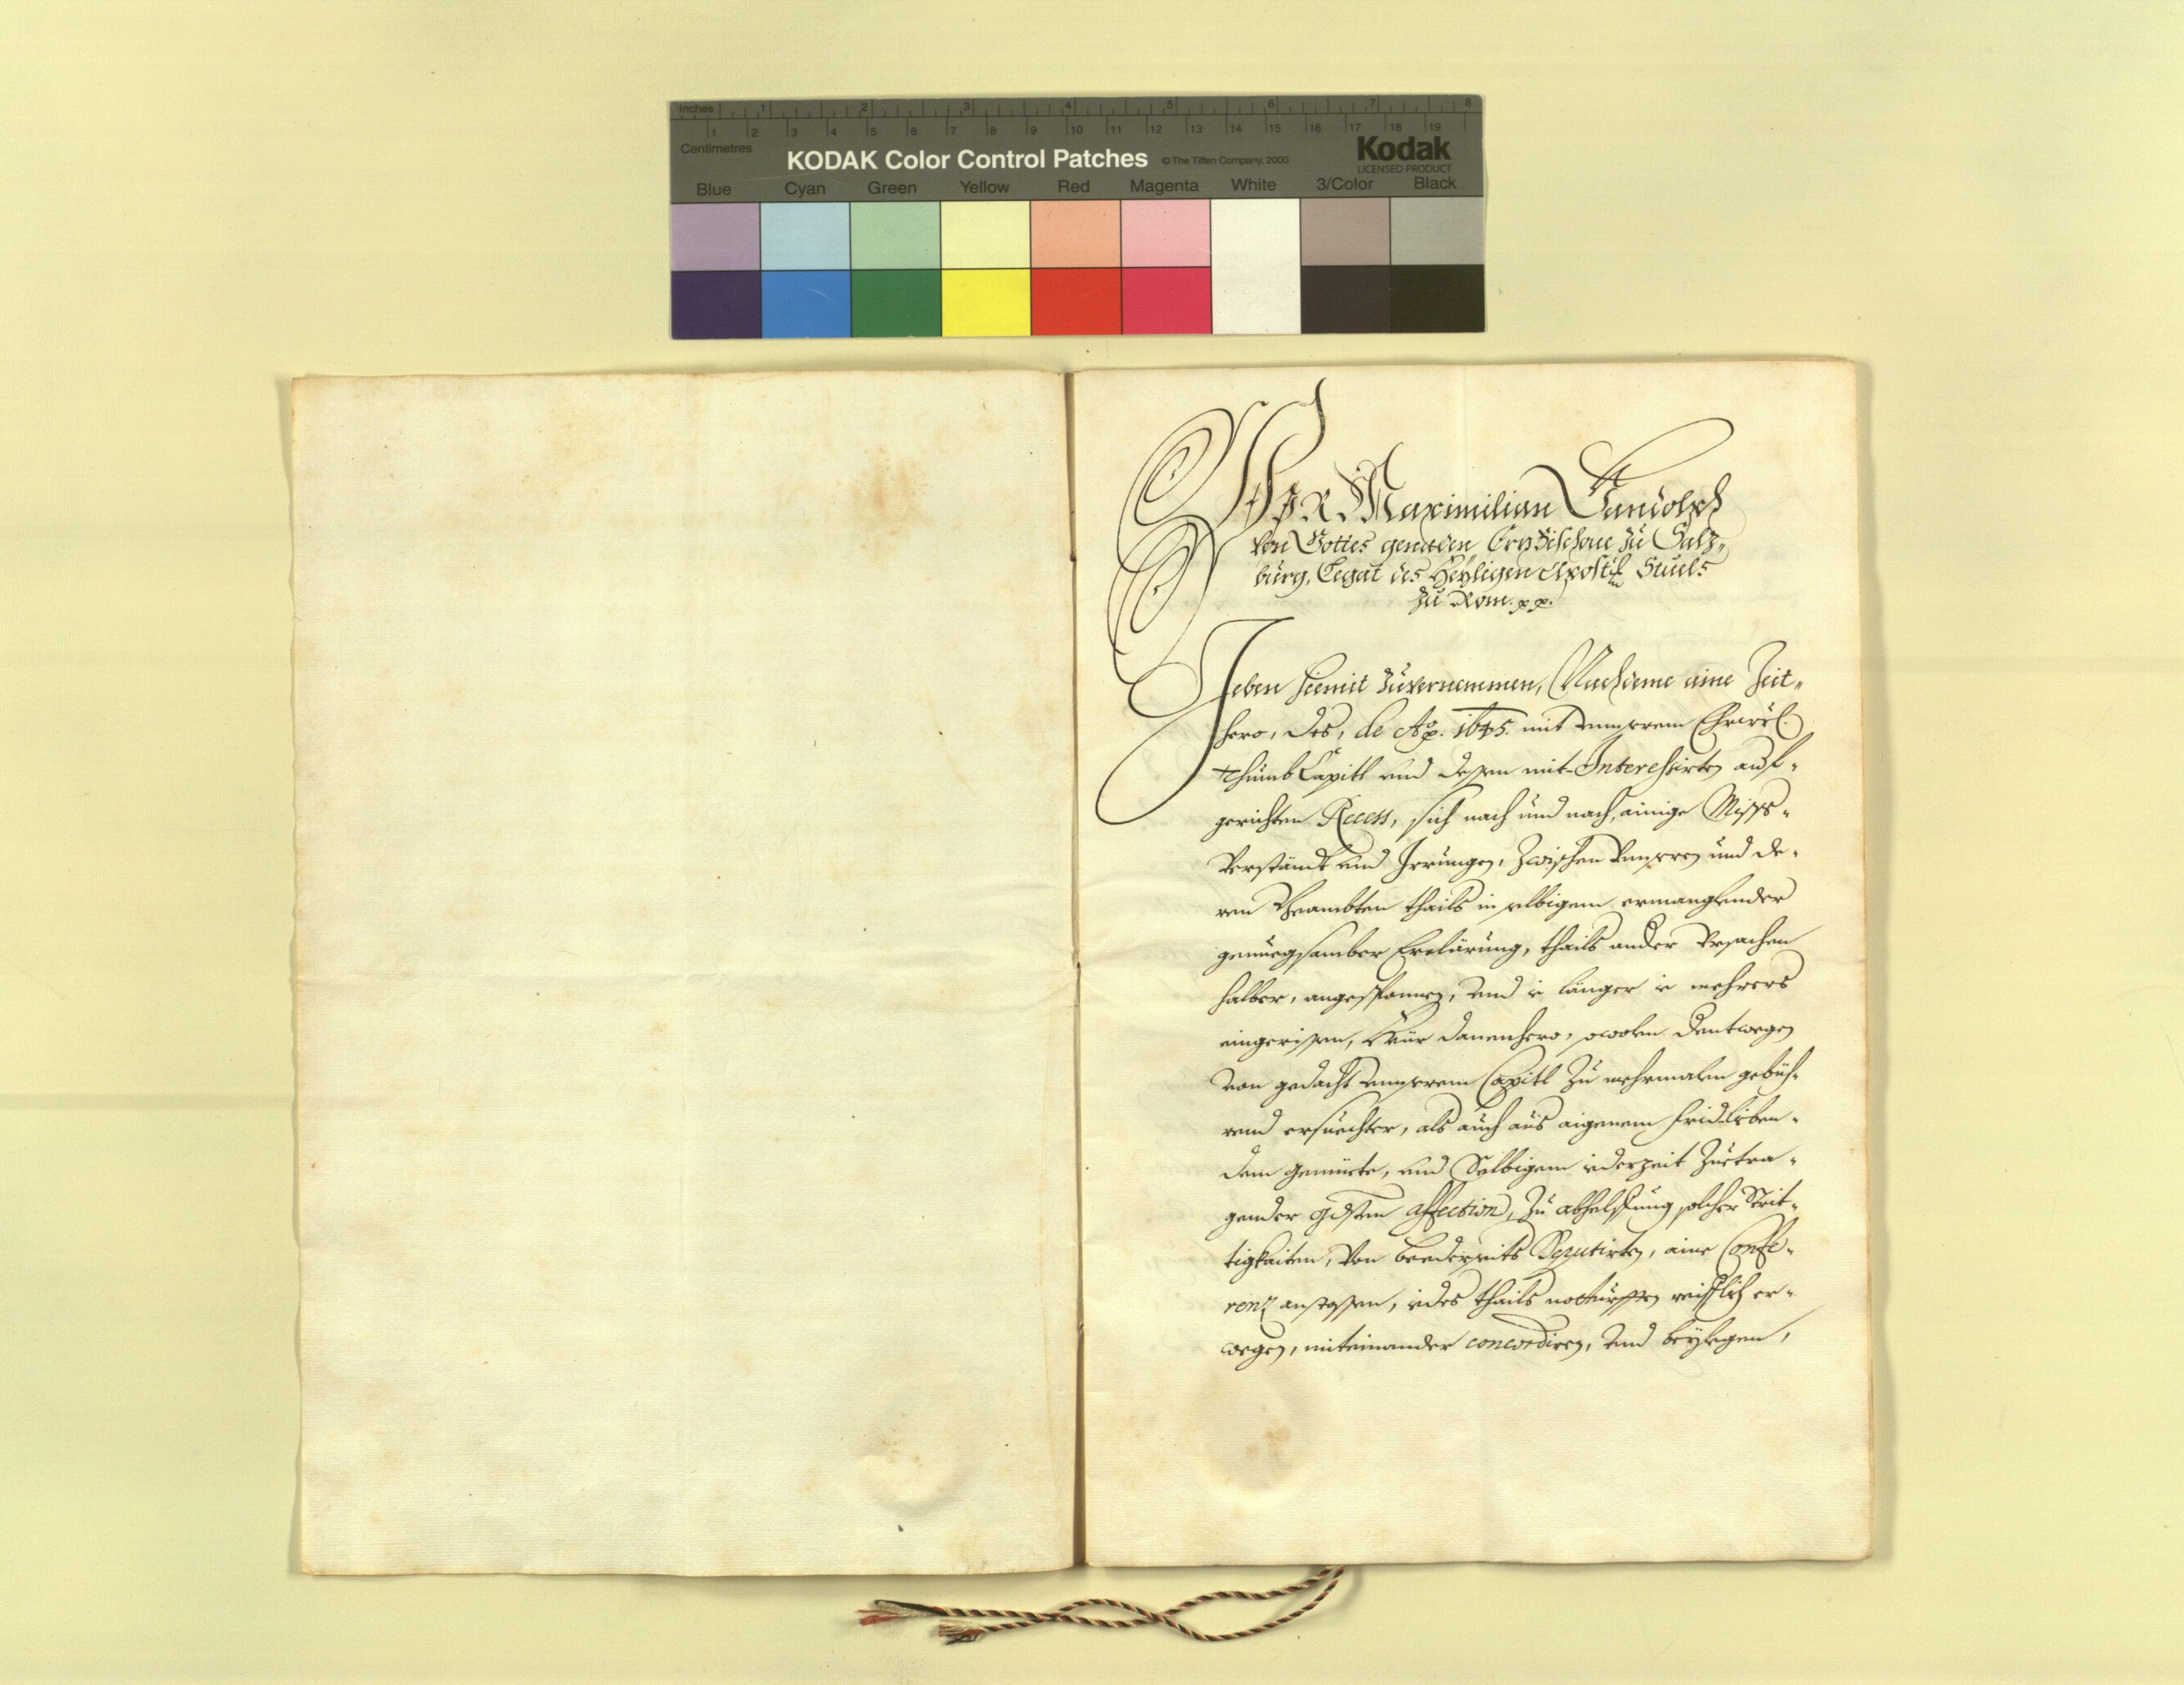 Inches 1 2 3 4 5 6 7 8
1 2 3 4 5 6 7 8 9 10 11 12 13 14 15 16 17 18 19
Centimetres
KODAK Color Control Patches © The Tiffen Company, 2000 Kodak
LICENSED PRODUCT
Blue Cyan Green Yellow Red Magenta White 3/Color Black
Wir Maximilian Gandolph
von Gottes genaden Erzbischoue zu Salz„
burg, Legat des Heyligen Apostl: Stuels
zu Rom. pp.
Geben hiemit zuuernemmen, Nachdeme aine Zeit„
hero, des, de Ao. 1645. mit vnnserem Ehrwl.
Thumb Capitl vnd dessen mit-Interessirten auf-
gerichten Recess, sich nach und nach, ainige Miss-
Verständt vnd Irrungen, Zwischen Vnnseren und de-
ren Beambten thails in selbigem ermanglender
genuegsamber Erclärung, thails ander Vrsachen
halber, angesponnen, vnd ie länger ie mehrers
eingerissen, Wür dannenhero, sowolen dentwegen
von gedacht vnnserem Capitl Zu mehrmalen gebüh-
rend ersuechter, als auch aus aigenem fridliben-
dem gemüete, vnd Selbigem iederzeit Zuetra-
gender gdisten affection, Zu abhelffung solcher Strit-
tigkaiten, Von beederseits Deputirten, aine Confe-
renz anstossen, iedes thails notturfften reifflich er-
wegen, miteinander concordiren, vnd beylegen,